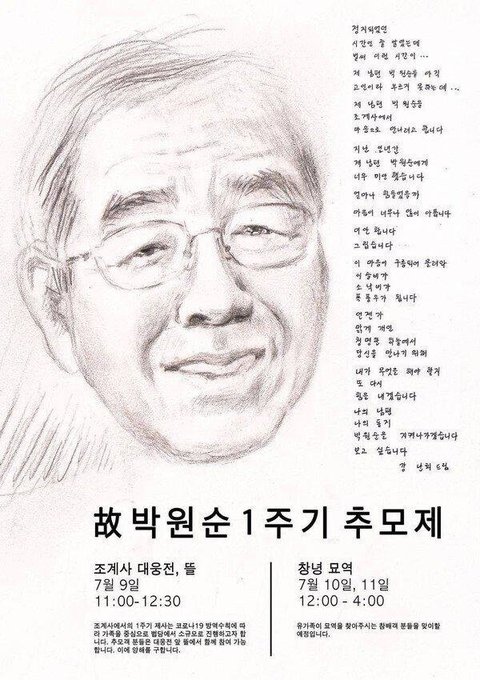 정지되었던
시간인 줄 알았는데
벌써 이런 시간이...
제 남편 박원순을 아직
고인이라 부르지 못하는데...
제 남편 박원순을
조계사에서
마음으로 만나려고 합니다
지난 1년간
제 남편 박원순에게
너무 미안했습니다
얼마나 힘들었을까
마음이 너무나 많이 아픕니다
미안합니다
그립습니다
이 마음이 구름되어 흘러가
이슬비가
소낙비가
폭풍우가 됩니다
언젠가
맑게 개인
청명한 하늘에서
당신을 만나기 위해
내가 무엇을 해야 할지
또 다시
힘을 내겠습니다
나의 남편
나의 동지
박원순을 지켜나가겠습니다
보고 싶습니다
강난희 드림
故 박원순 1주기 추모제
조계사 대웅전, 뜰
7월 9일
11:00-12:30
조계사에서의 1주기 제사는 코로나19 방역수칙에 따
라 가족을 중심으로 법당에서 소규모로 진행하고자 합
니다. 추모객 분들은 대웅전 앞 뜰에서 함께 참여 가능
합니다. 이에 양해를 구합니다.
창녕 묘역
7월 10일, 11일
12:00 - 4:00
유가족이 묘역을 찾아주시는 참배객 분들을 맞이할
예정입니다.